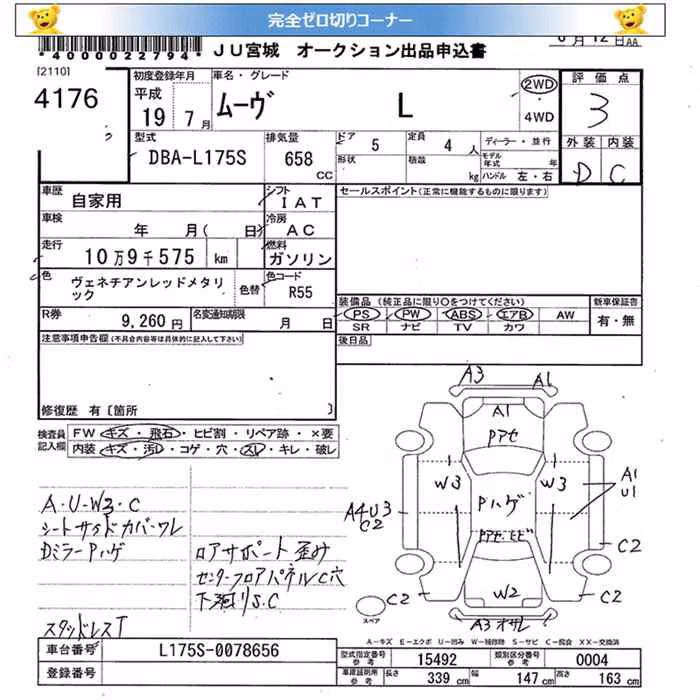 完全ゼロ切りコーナー
*4000022794* JU宮城 オークション出品申込書
[2110]
4176
初度登録年月 平成 19 7月
車名・グレード ムーヴ L
2WD
4WD
評価点 3
外装 内装
D C
型式 DBA-L175S
排気量 658 CC
ドア 5
定員 4 人
ディーラー・並行
形状
積載 kg
モデル年式 年
ハンドル 左・右
車歴 自家用
シフト IAT
セールスポイント(正常に機能するものに限ります)
車検 年 月 ( 日)
冷房 AC
走行 10万9千575 km
燃料 ガソリン
色 ヴェネチアンレッドメタリック
色替
色コード R55
装備品 (純正品に限り〇をつけてください)
新車保証書
PS PW ABS エアB AW
有・無
SR ナビ TV カワ
R券 9,260円
名変通知期限 月 日
後日品
注意事項申告欄(不具合内容等は具体的に記入して下さい)
修復歴 有〔箇所 〕
検査員記入欄
FW キズ・飛石・ヒビ割・リペア跡・×要
内装 キズ・汚レ・コゲ・穴・スレ・キレ・破レ
A3
A1
A1
Pアセ
W3
W3
Pハゲ
A1
U1
A4U3
C2
Pアセ、ヒビ
C2
W2
C2
C2
A3 オサレ
スペア
A・U・W3・C
シートサイドカバーワレ
DミラーPハゲ
ロアサポート歪み
センターフロアパネルC穴
下廻りS.C
スタッドレスT
A-キズ E-エクボ U-凹み W-補修跡 S-サビ C-腐食 XX-交換済
車台番号 L175S-0078656
登録番号
型式指定番号 参考 15492
類別区分番号 参考 0004
車庫証明用 参考 長さ 339 cm 幅 147 cm 高さ 163 cm